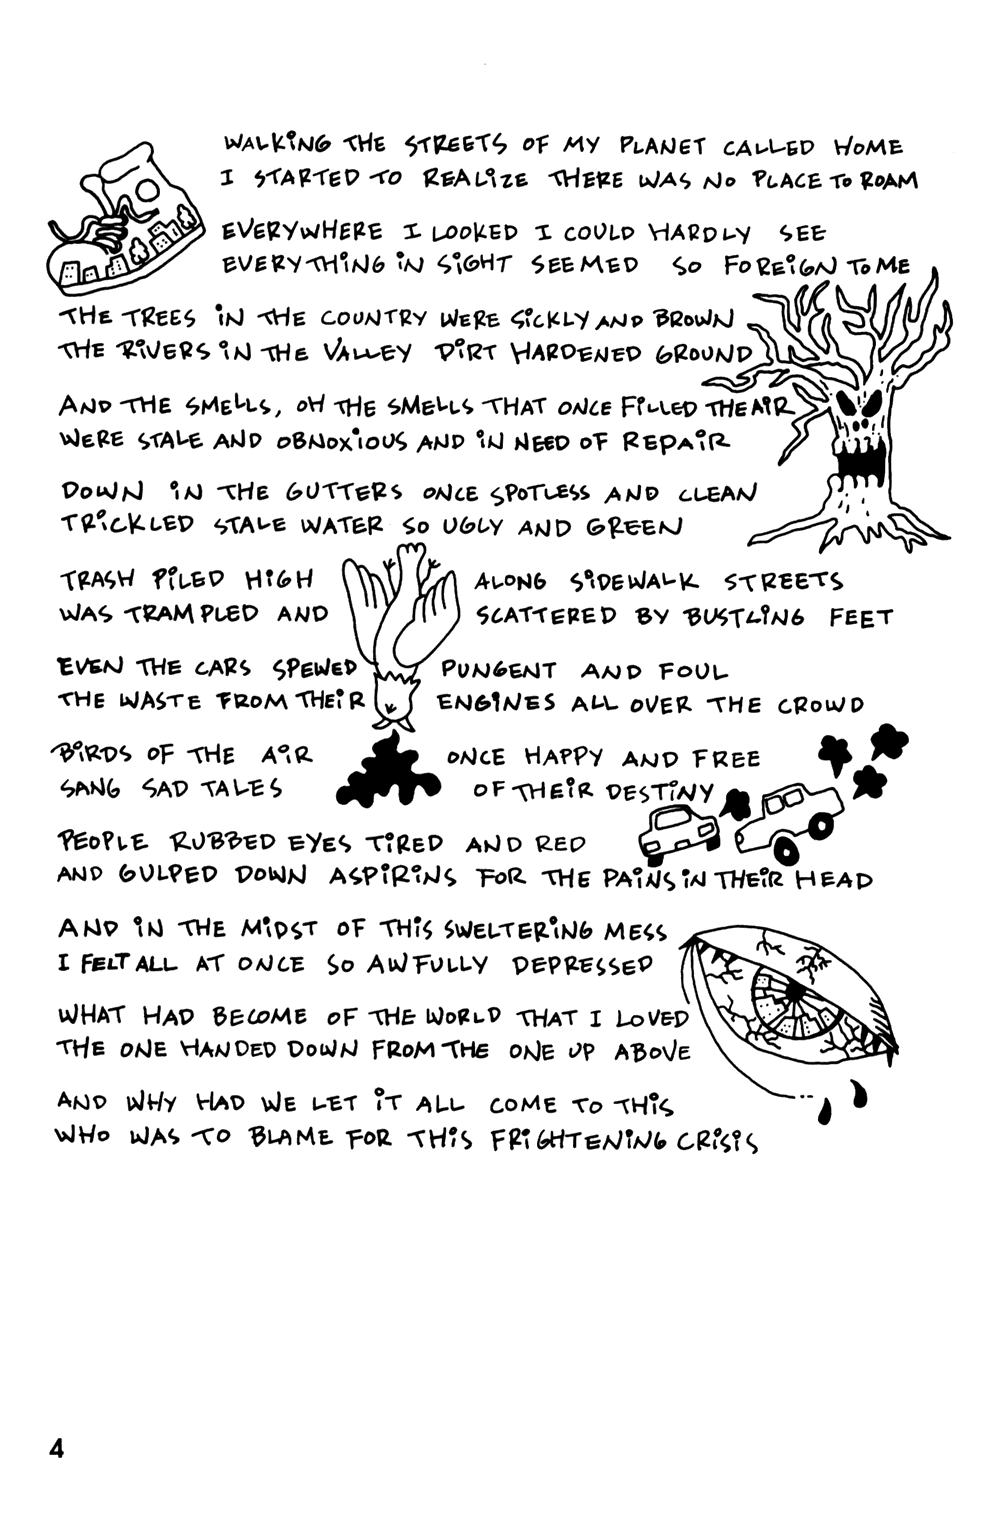 WALKING THE STREETS OF MY PLANET CALLED HOME
I STARTED TO REALIZE THERE WAS NO PLACE TO ROAM
EVERYWHERE I LOOKED I COULD HARDLY SEE
EVERYTHING IN SIGHT SEEMED SO FOREIGN TO ME
THE TREES IN THE COUNTRY WERE SICKLY AND BROWN
THE RIVERS IN THE VALLEY DIRT HARDENED GROUND
AND THE SMELLS, OH THE SMELLS THAT ONCE FILLED THE AIR
WERE STALE AND OBNOXIOUS AND IN NEED OF REPAIR
DOWN IN THE GUTTERS ONCE SPOTLESS AND CLEAN
TRICKLED STALE WATER SO UGLY AND GREEN
TRASH PILED HIGH ALONG SIDEWALK STREETS
WAS TRAMPLED AND SCATTERED BY BUSTLING FEET
EVEN THE CARS SPEWED PUNGENT AND FOUL
THE WASTE FROM THEIR ENGINES ALL OVER THE CROWD
BIRDS OF THE AIR ONCE HAPPY AND FREE
SANG SAD TALES OF THEIR DESTINY
PEOPLE RUBBED EYES TIRED AND RED
AND GULPED DOWN ASPIRINS FOR THE PAINS IN THEIR HEAD
AND IN THE MIDST OF THIS SWELTERING MESS
I FELT ALL AT ONCE SO AWFULLY DEPRESSED
WHAT HAD BECOME OF THE WORLD THAT I LOVED
THE ONE HANDED DOWN FROM THE ONE UP ABOVE
AND WHY HAD WE LET IT ALL COME TO THIS
WHO WAS TO BLAME FOR THIS FRIGHTENING CRISIS
4